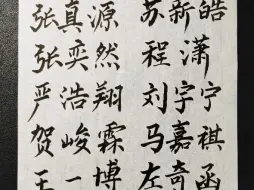 张真源 苏新皓
张奕然 程潇
严浩翔 刘宇宁
贺峻霖 马嘉祺
王一博 左奇函